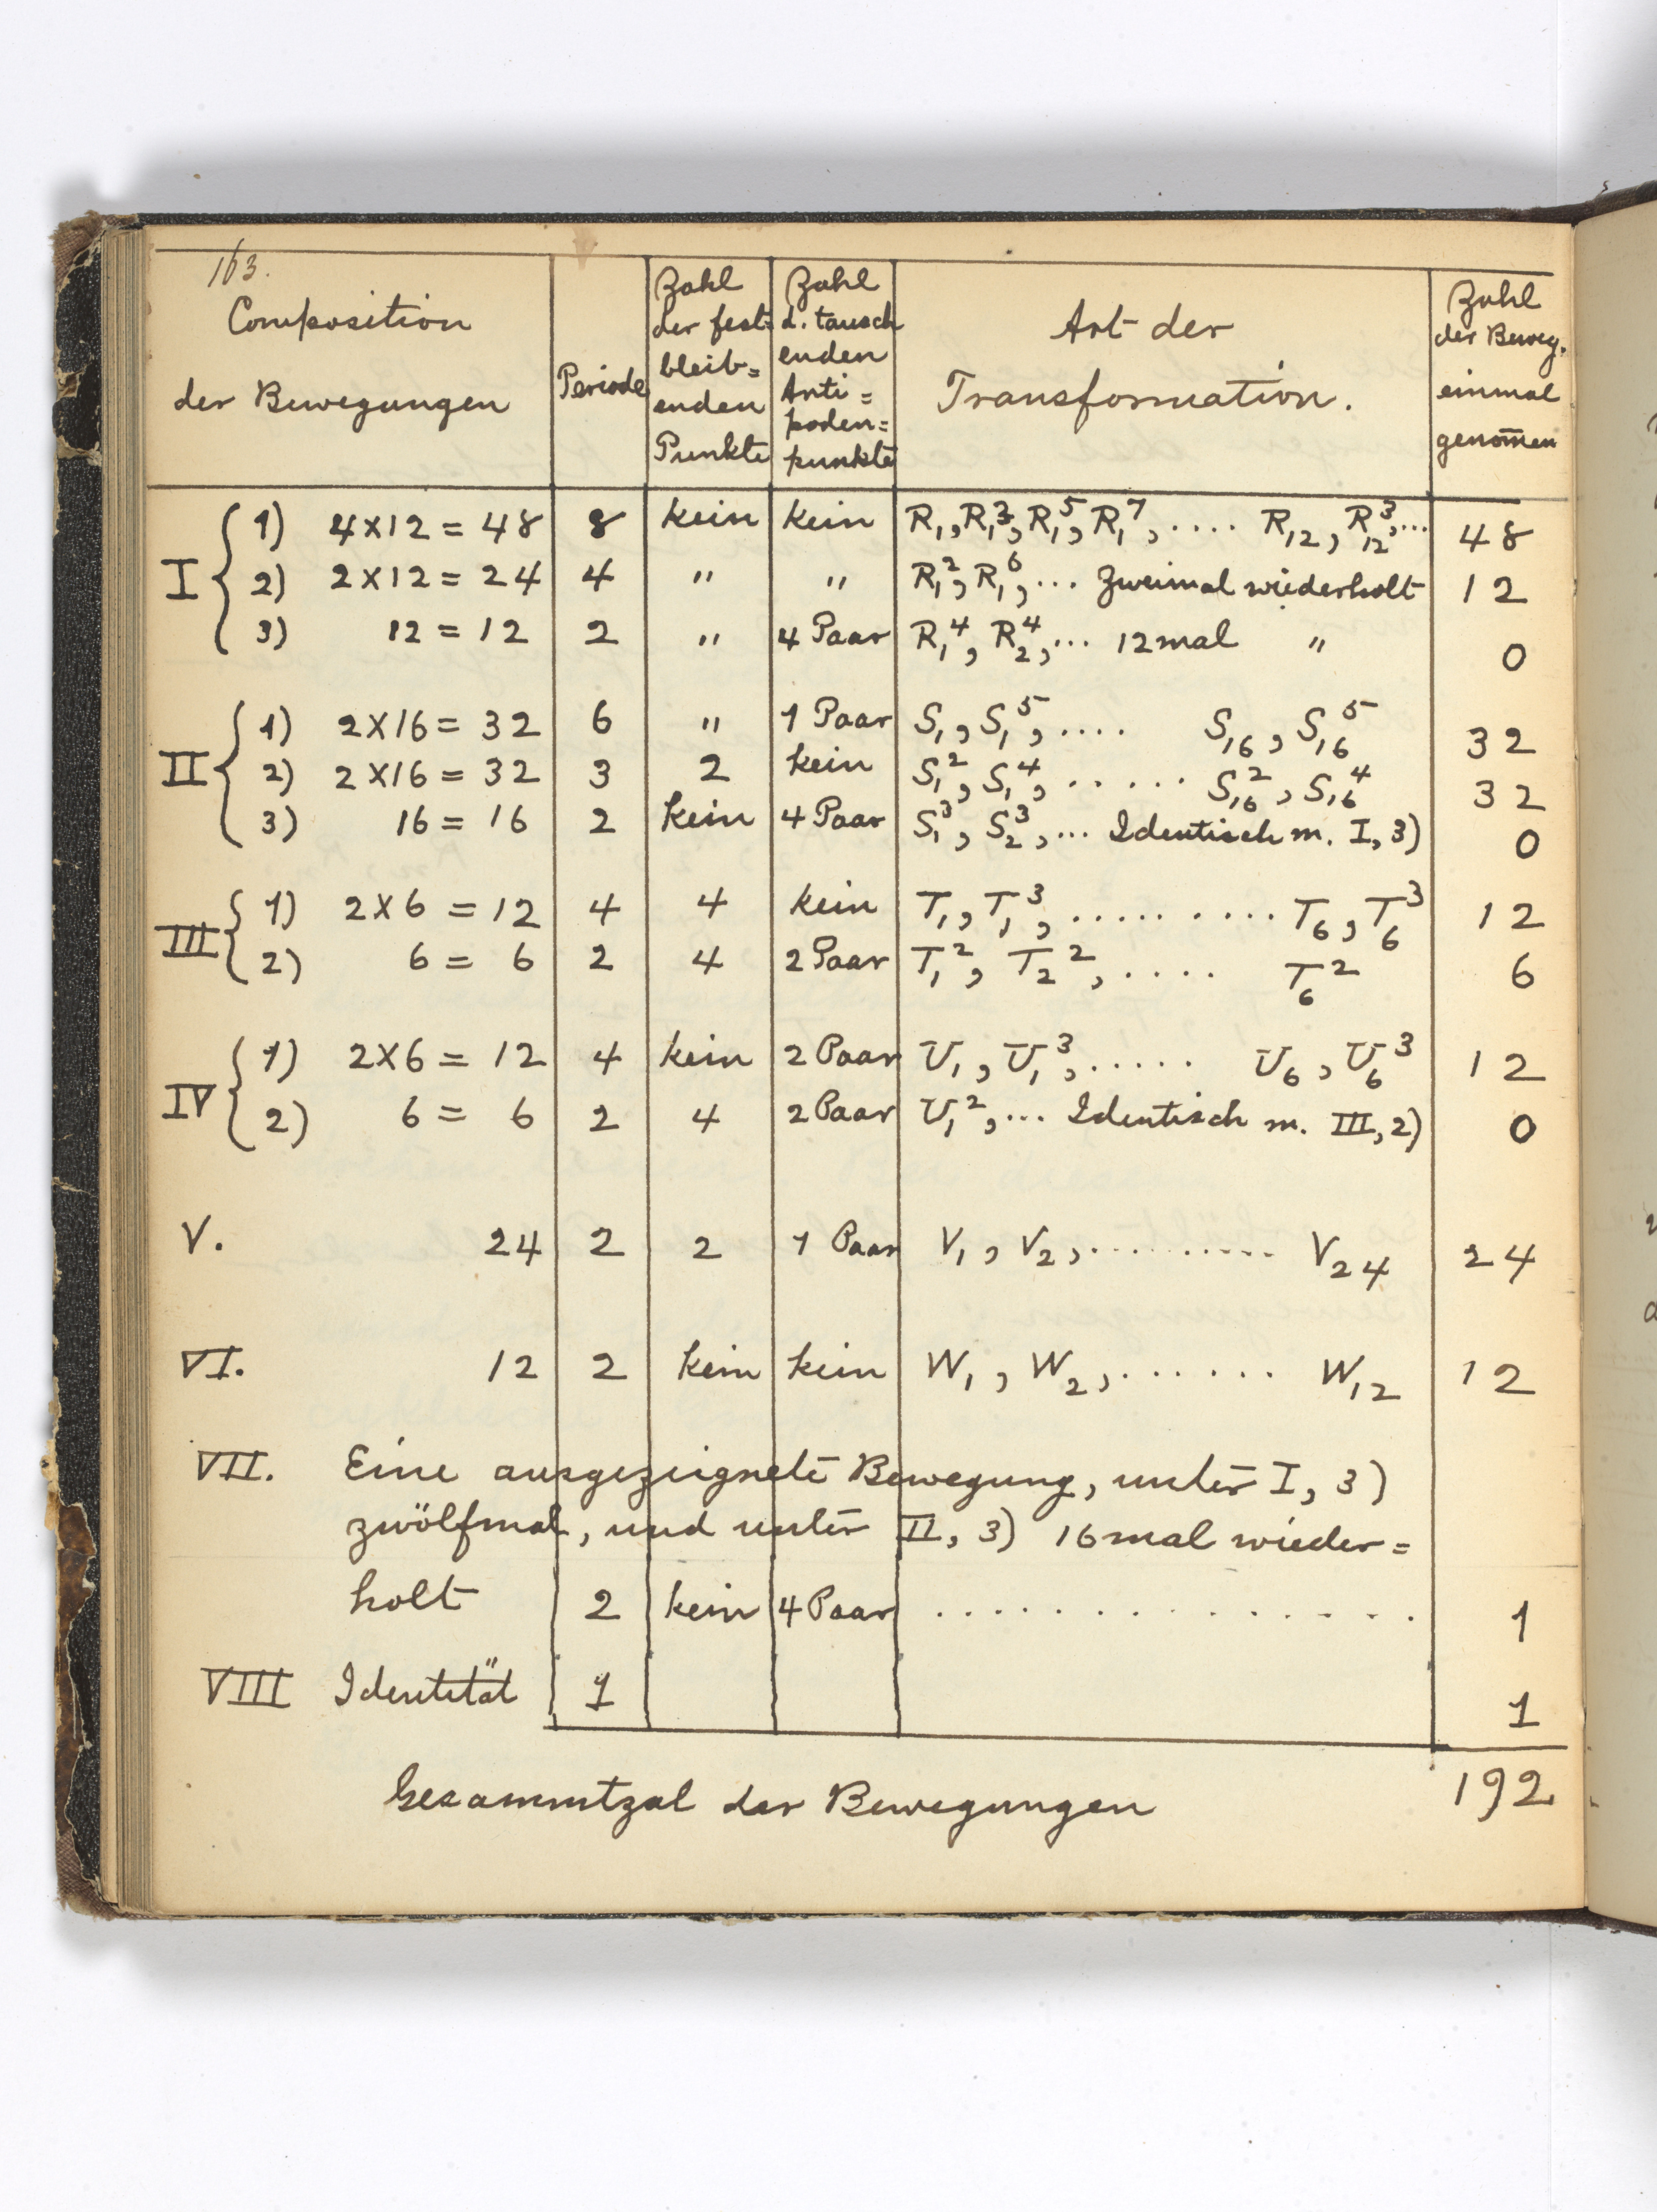 163.
Composition der Bewegungen | Periode | Zahl der fest= bleib= enden Punkte | Zahl d. tausch enden Anti= poden= punkte | Art der Transformation. | Zahl der Beweg. einmal genom̄en
I { 1) 4×12 = 48 | 8 | kein | kein | R₁, R₁³, R₁⁵, R₁⁷, .... R₁₂, R₁₂³, ... | 48
2) 2×12 = 24 | 4 | " | " | R₁², R₁⁶, ... zweimal wiederholt | 12
3) 12 = 12 | 2 | " | 4 Paar | R₁⁴, R₂⁴, ... 12mal " | 0
II { 1) 2×16 = 32 | 6 | " | 1 Paar | S₁, S₁⁵, .... S₁₆, S₁₆⁵ | 32
2) 2×16 = 32 | 3 | 2 | kein | S₁², S₁⁴, ...... S₁₆², S₁₆⁴ | 32
3) 16 = 16 | 2 | kein | 4 Paar | S₁³, S₂³, ... Identisch m. I, 3) | 0
III { 1) 2×6 = 12 | 4 | 4 | kein | T₁, T₁³, .......... T₆, T₆³ | 12
2) 6 = 6 | 2 | 4 | 2 Paar | T₁², T₂², .... T₆² | 6
IV { 1) 2×6 = 12 | 4 | kein | 2 Paar | U₁, U₁³, ..... U₆, U₆³ | 12
2) 6 = 6 | 2 | 4 | 2 Paar | U₁², ... Identisch m. III, 2) | 0
V. 24 | 2 | 2 | 1 Paar | V₁, V₂, .......... V₂₄ | 24
VI. 12 | 2 | kein | kein | W₁, W₂, ....... W₁₂ | 12
VII. Eine ausgezeignete Bewegung, unter I, 3)
zwölfmal, und unter II, 3) 16mal wieder=
holt | 2 | kein | 4 Paar | ............... | 1
VIII Identität | 1 | 1
Gesammtzal der Bewegungen 192